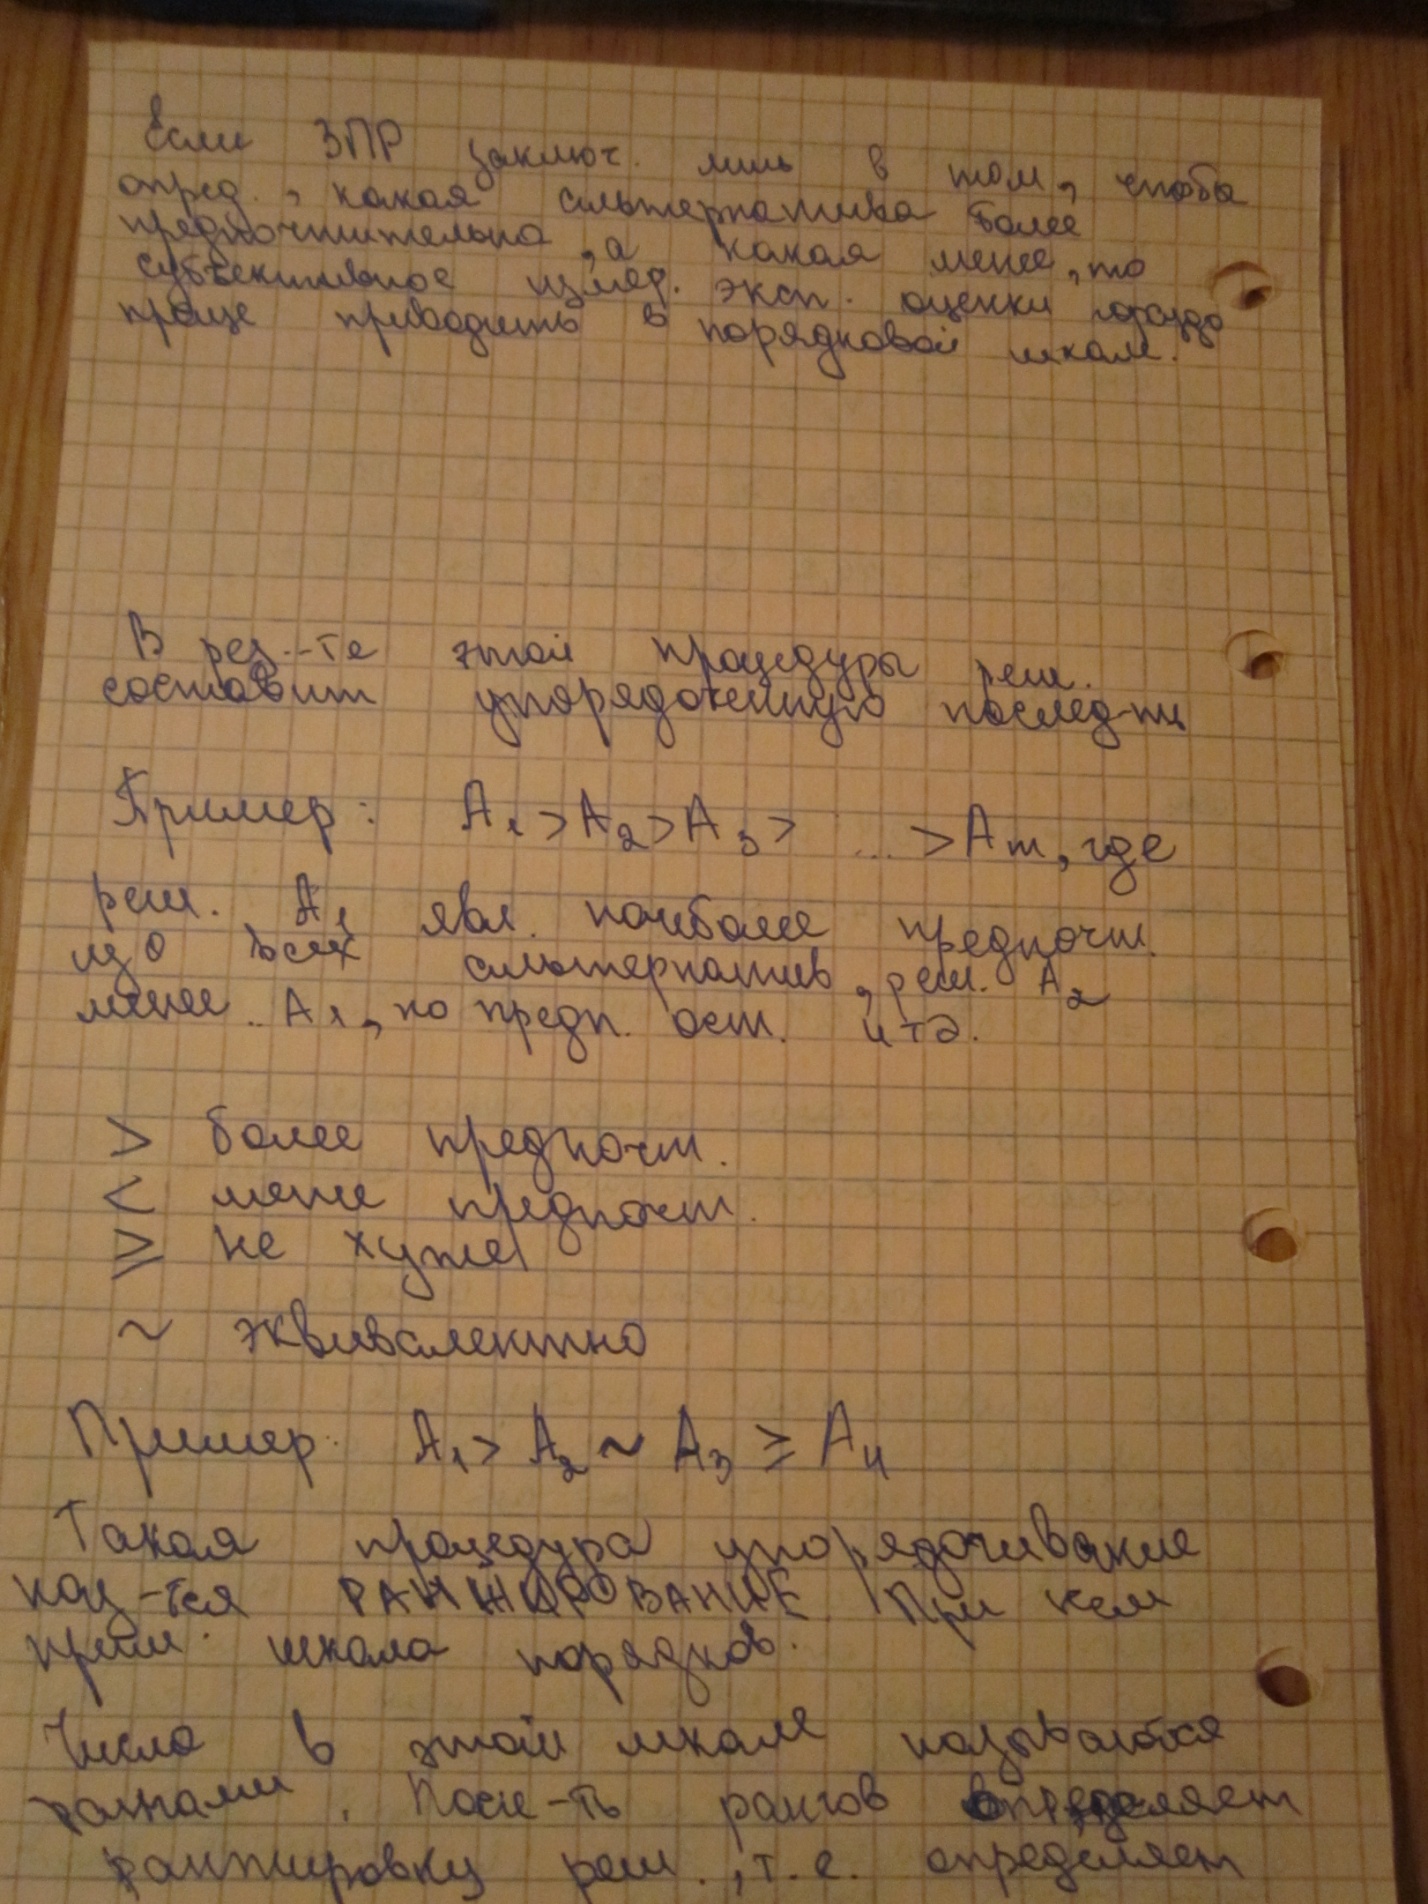 Если ЗПР заключ. лишь в том, чтобы
опред., какая альтернатива более
предпочтительна, а какая менее, то
субъективное измер. эксп. оценки гораздо
проще приводить в порядковой шкале.
В рез.-те этой процедуры реш.
составит упорядоченную послед-ть
Пример: A₁ > A₂ > A₃ > ... > Am, где
реш. A₁ явл. наиболее предпочт.
изо всех альтернатив, реш. A₂
менее A₁, но предп. ост. и тд.
> более предпочт.
< менее предпочт.
≥ не хуже
~ эквивалентно
Пример: A₁ > A₂ ~ A₃ ≥ A₄
Такая процедура упорядочивание
наз-тся РАНЖИРОВАНИЕ. При нем
прим. шкала порядков.
Числа в этой шкале называются
рангами. Посл-ть рангов определяет
ранжировку реш., т.е. определяет